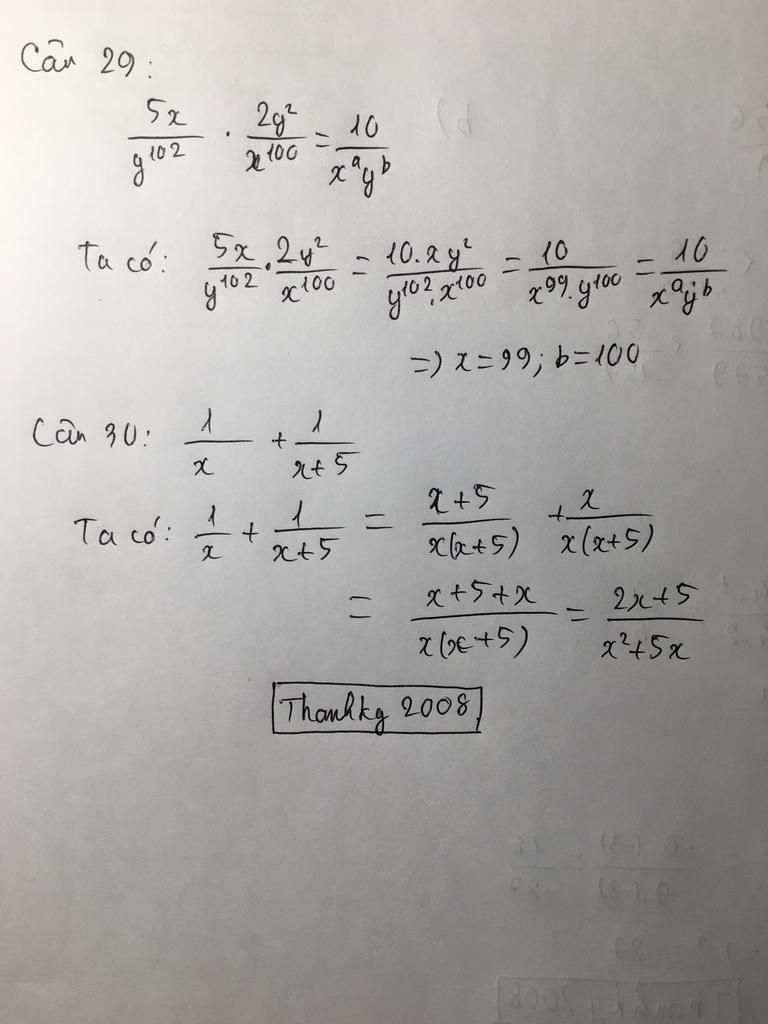 Câu 29:
5x/y^102 . 2y²/x^100 = 10/x^a y^b
Ta có: 5x/y^102 . 2y²/x^100 = 10.xy²/y^102.x^100 = 10/x^99.y^100 = 10/x^a y^b
=) x = 99; b = 100
Câu 30: 1/x + 1/x+5
Ta có: 1/x + 1/x+5 = x+5/x(x+5) + x/x(x+5)
= x+5+x/x(x+5) = 2x+5/x²+5x
Thanhkg 2008